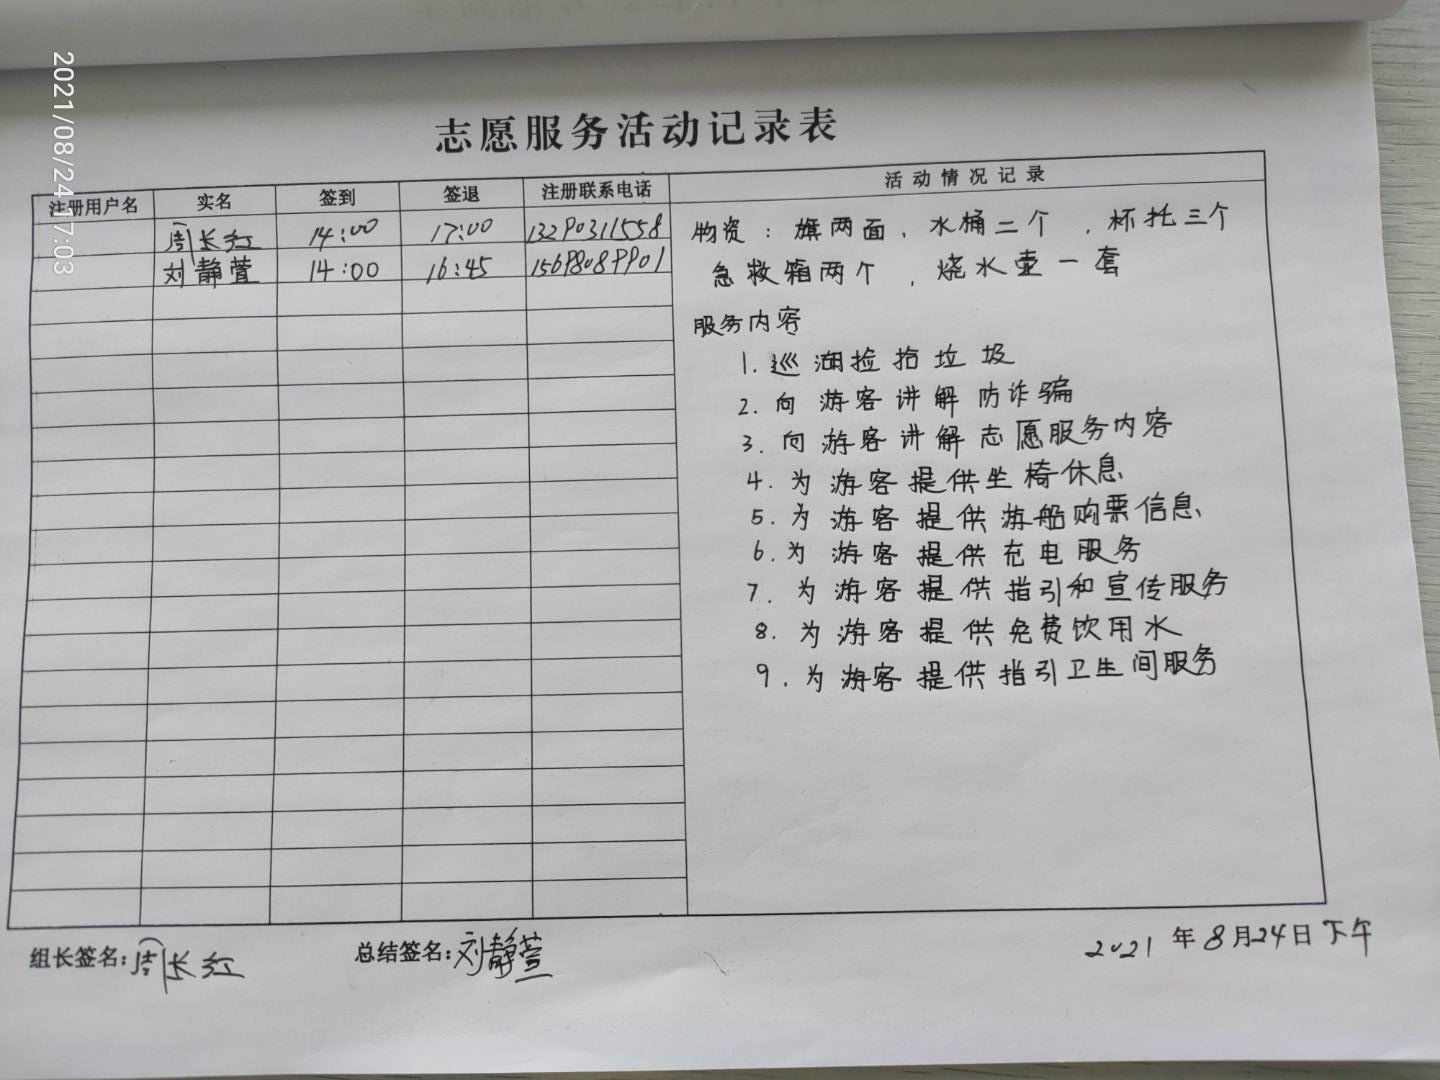 2021/08/24 17:03
志愿服务活动记录表
注册用户名 实名 签到 签退 注册联系电话 活动情况记录
周长红 14:00 17:00 13290311558
刘静萱 14:00 16:45 15698089901
物资：旗两面，水桶二个，杯托三个
急救箱两个，烧水壶一套
服务内容
1. 巡湖捡拾垃圾
2. 向游客讲解防诈骗
3. 向游客讲解志愿服务内容
4. 为游客提供坐椅休息
5. 为游客提供游船购票信息
6. 为游客提供充电服务
7. 为游客提供指引和宣传服务
8. 为游客提供免费饮用水
9. 为游客提供指引卫生间服务
组长签名：周长红 总结签名：刘静萱 2021年8月24日下午